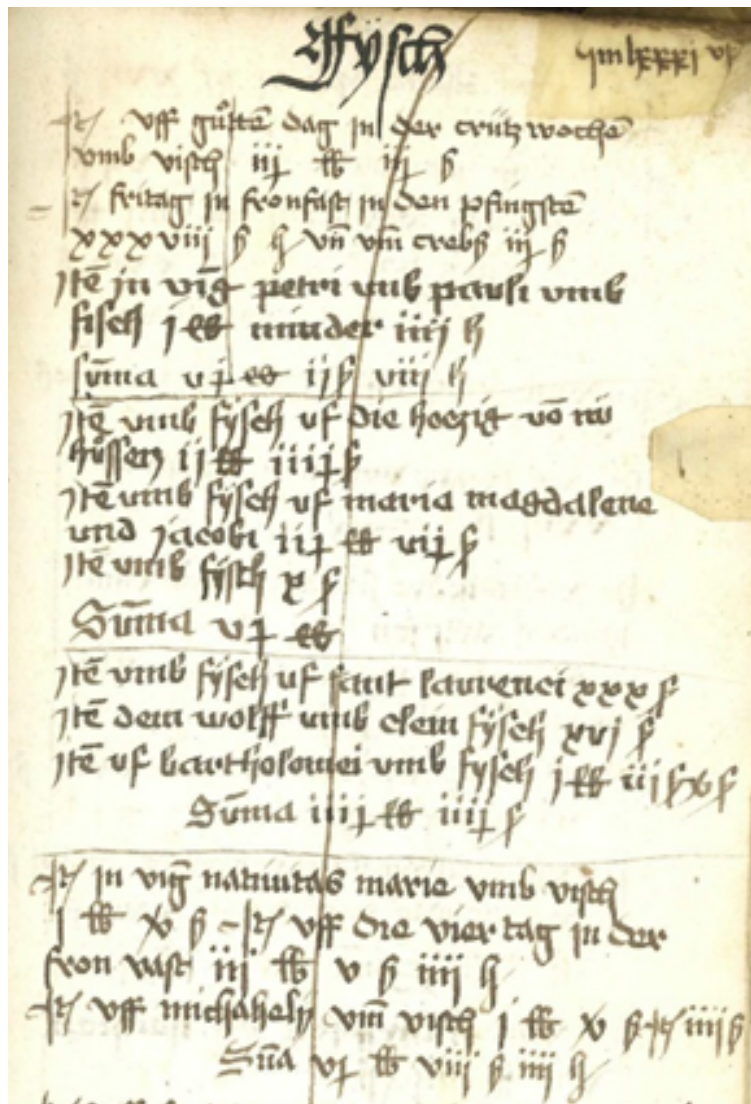 Fÿsch
uff gůtte͞ dag in der crützwoche͞
umb visch iij lb iij ß
fritag in fronfast in den pfingste͞
xxxviij ß h vn̄ vm̄ crebß iij ß
Jte͞ in vig̅ petri unb pauli umb
fisch j lb minder iiij h
su͞ma vj lb ij ß viij h
Jte͞ umb fÿsch uf die hoczig vo͞ nü
hüssen ij lb iiij ß
Jte͞ umb fÿsch uf maria magdalene
und jacobi iij lb vij ß
Jte͞ umb fÿsch x ß
Su͞ma vj lb
Jte͞ umb fÿsch uf sant laurenci xxx ß
Jte͞ dem wolff umb clein fÿsch xvj ß
Jte͞ uf bartholomei umb fÿsch j lb iij ß
Su͞ma iiij lb iiij ß
in vig̅ nativitas marie vmb visch
j lb xv ß uff die vier tag in der
fron vast iij lb v ß iiij h
uff michahely vm̄ visch j lb xv ß iiij ß
Su͞a vj lb viij ß iiij h